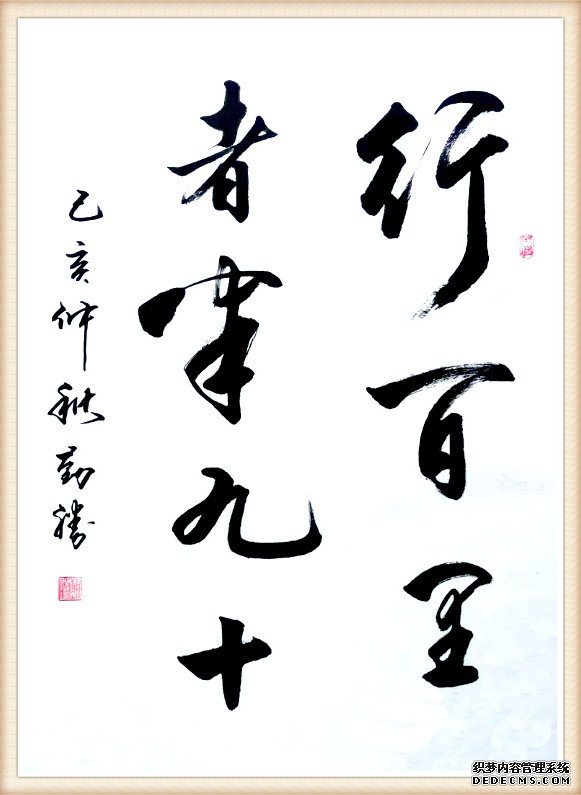 行百里
者半九十
己亥仲秋勤勝
织梦内容管理系统
DEDECMS.COM